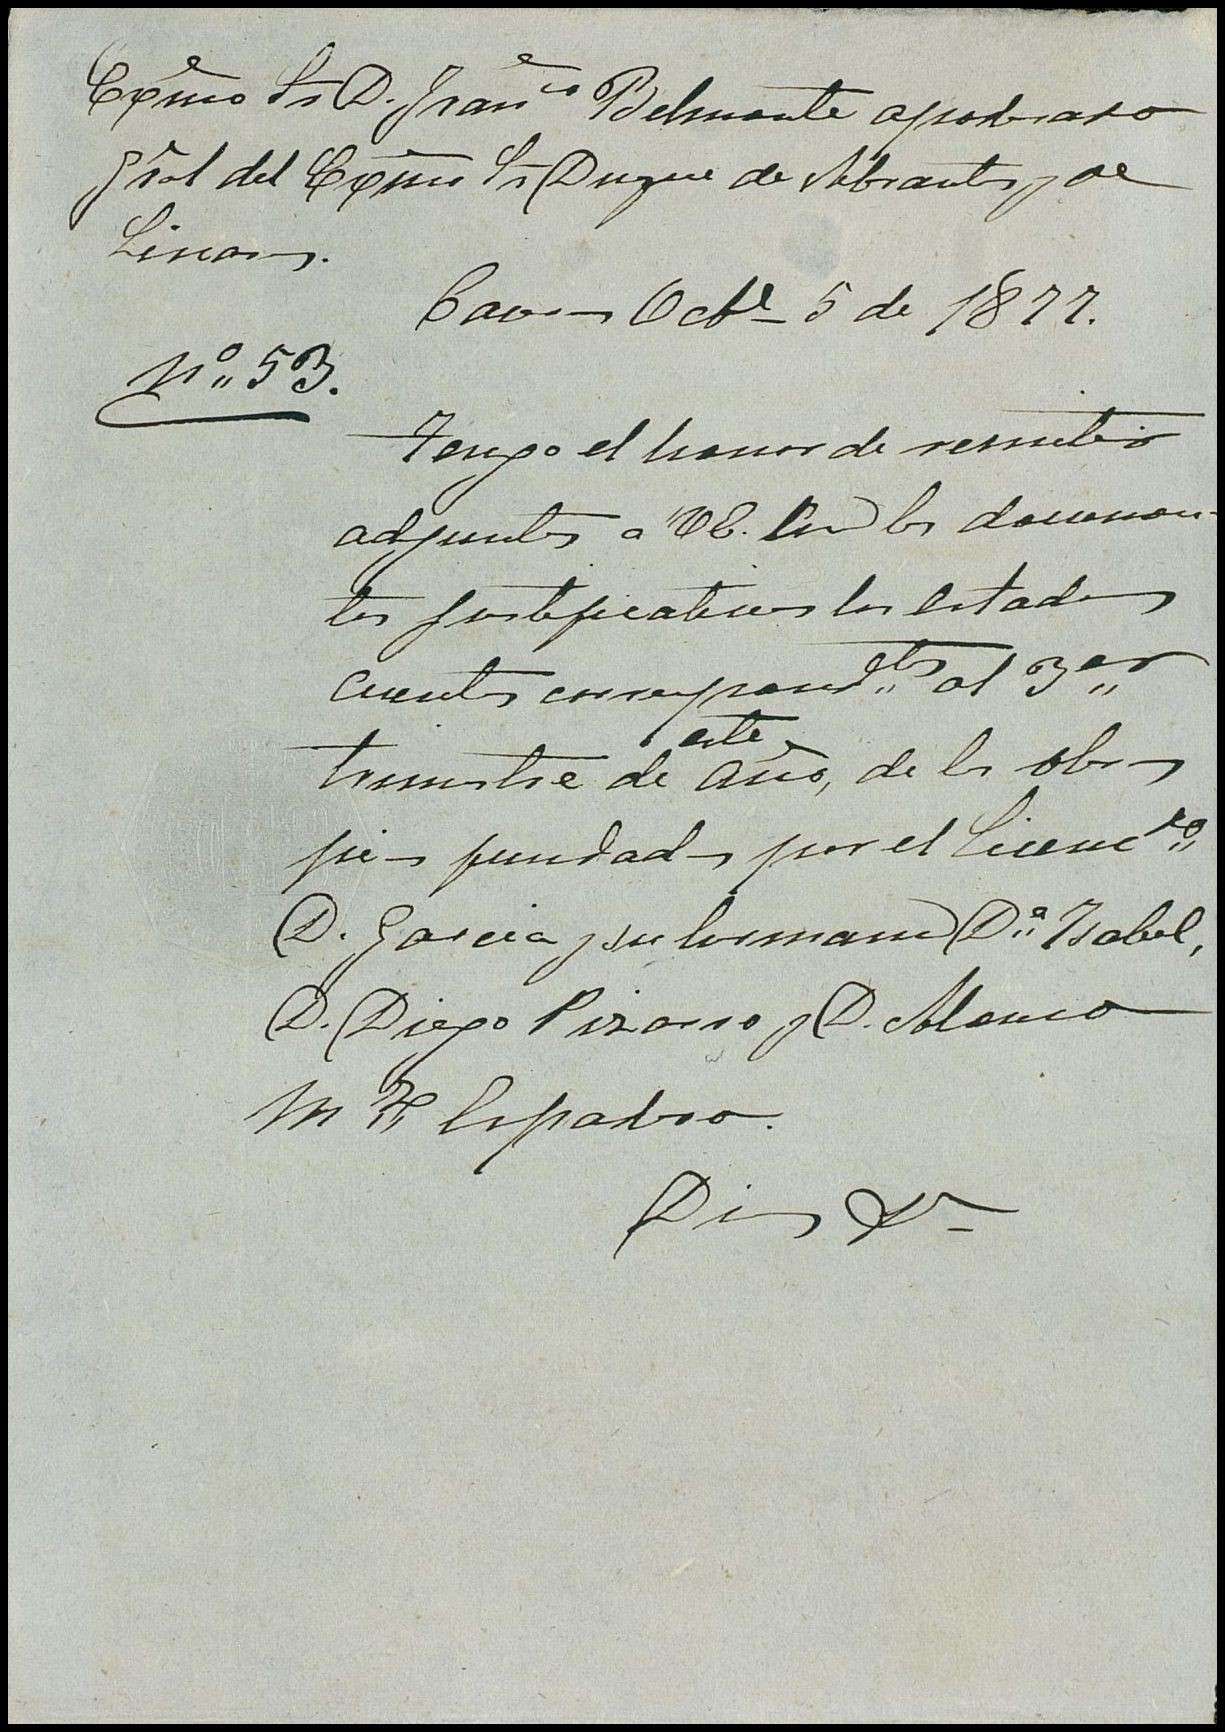 Exmo Sr D. Franco Belmonte apoderado
Gral del Exmo Sr Duque de Abrantes y de
Linares.
Octe 5 de 1877.
No. 53.
Tengo el honor de remitir
adjuntos a VE. con los documen-
tos justificativos los estados
cuentas correspondtes al 3er
trimestre de este año, de las obras
pias fundadas por el Licencdo
D. Garcia y su hermana Da Isabel,
D. Diego Pizarro y D. Alonso
Mz Espadero.
Dios &a